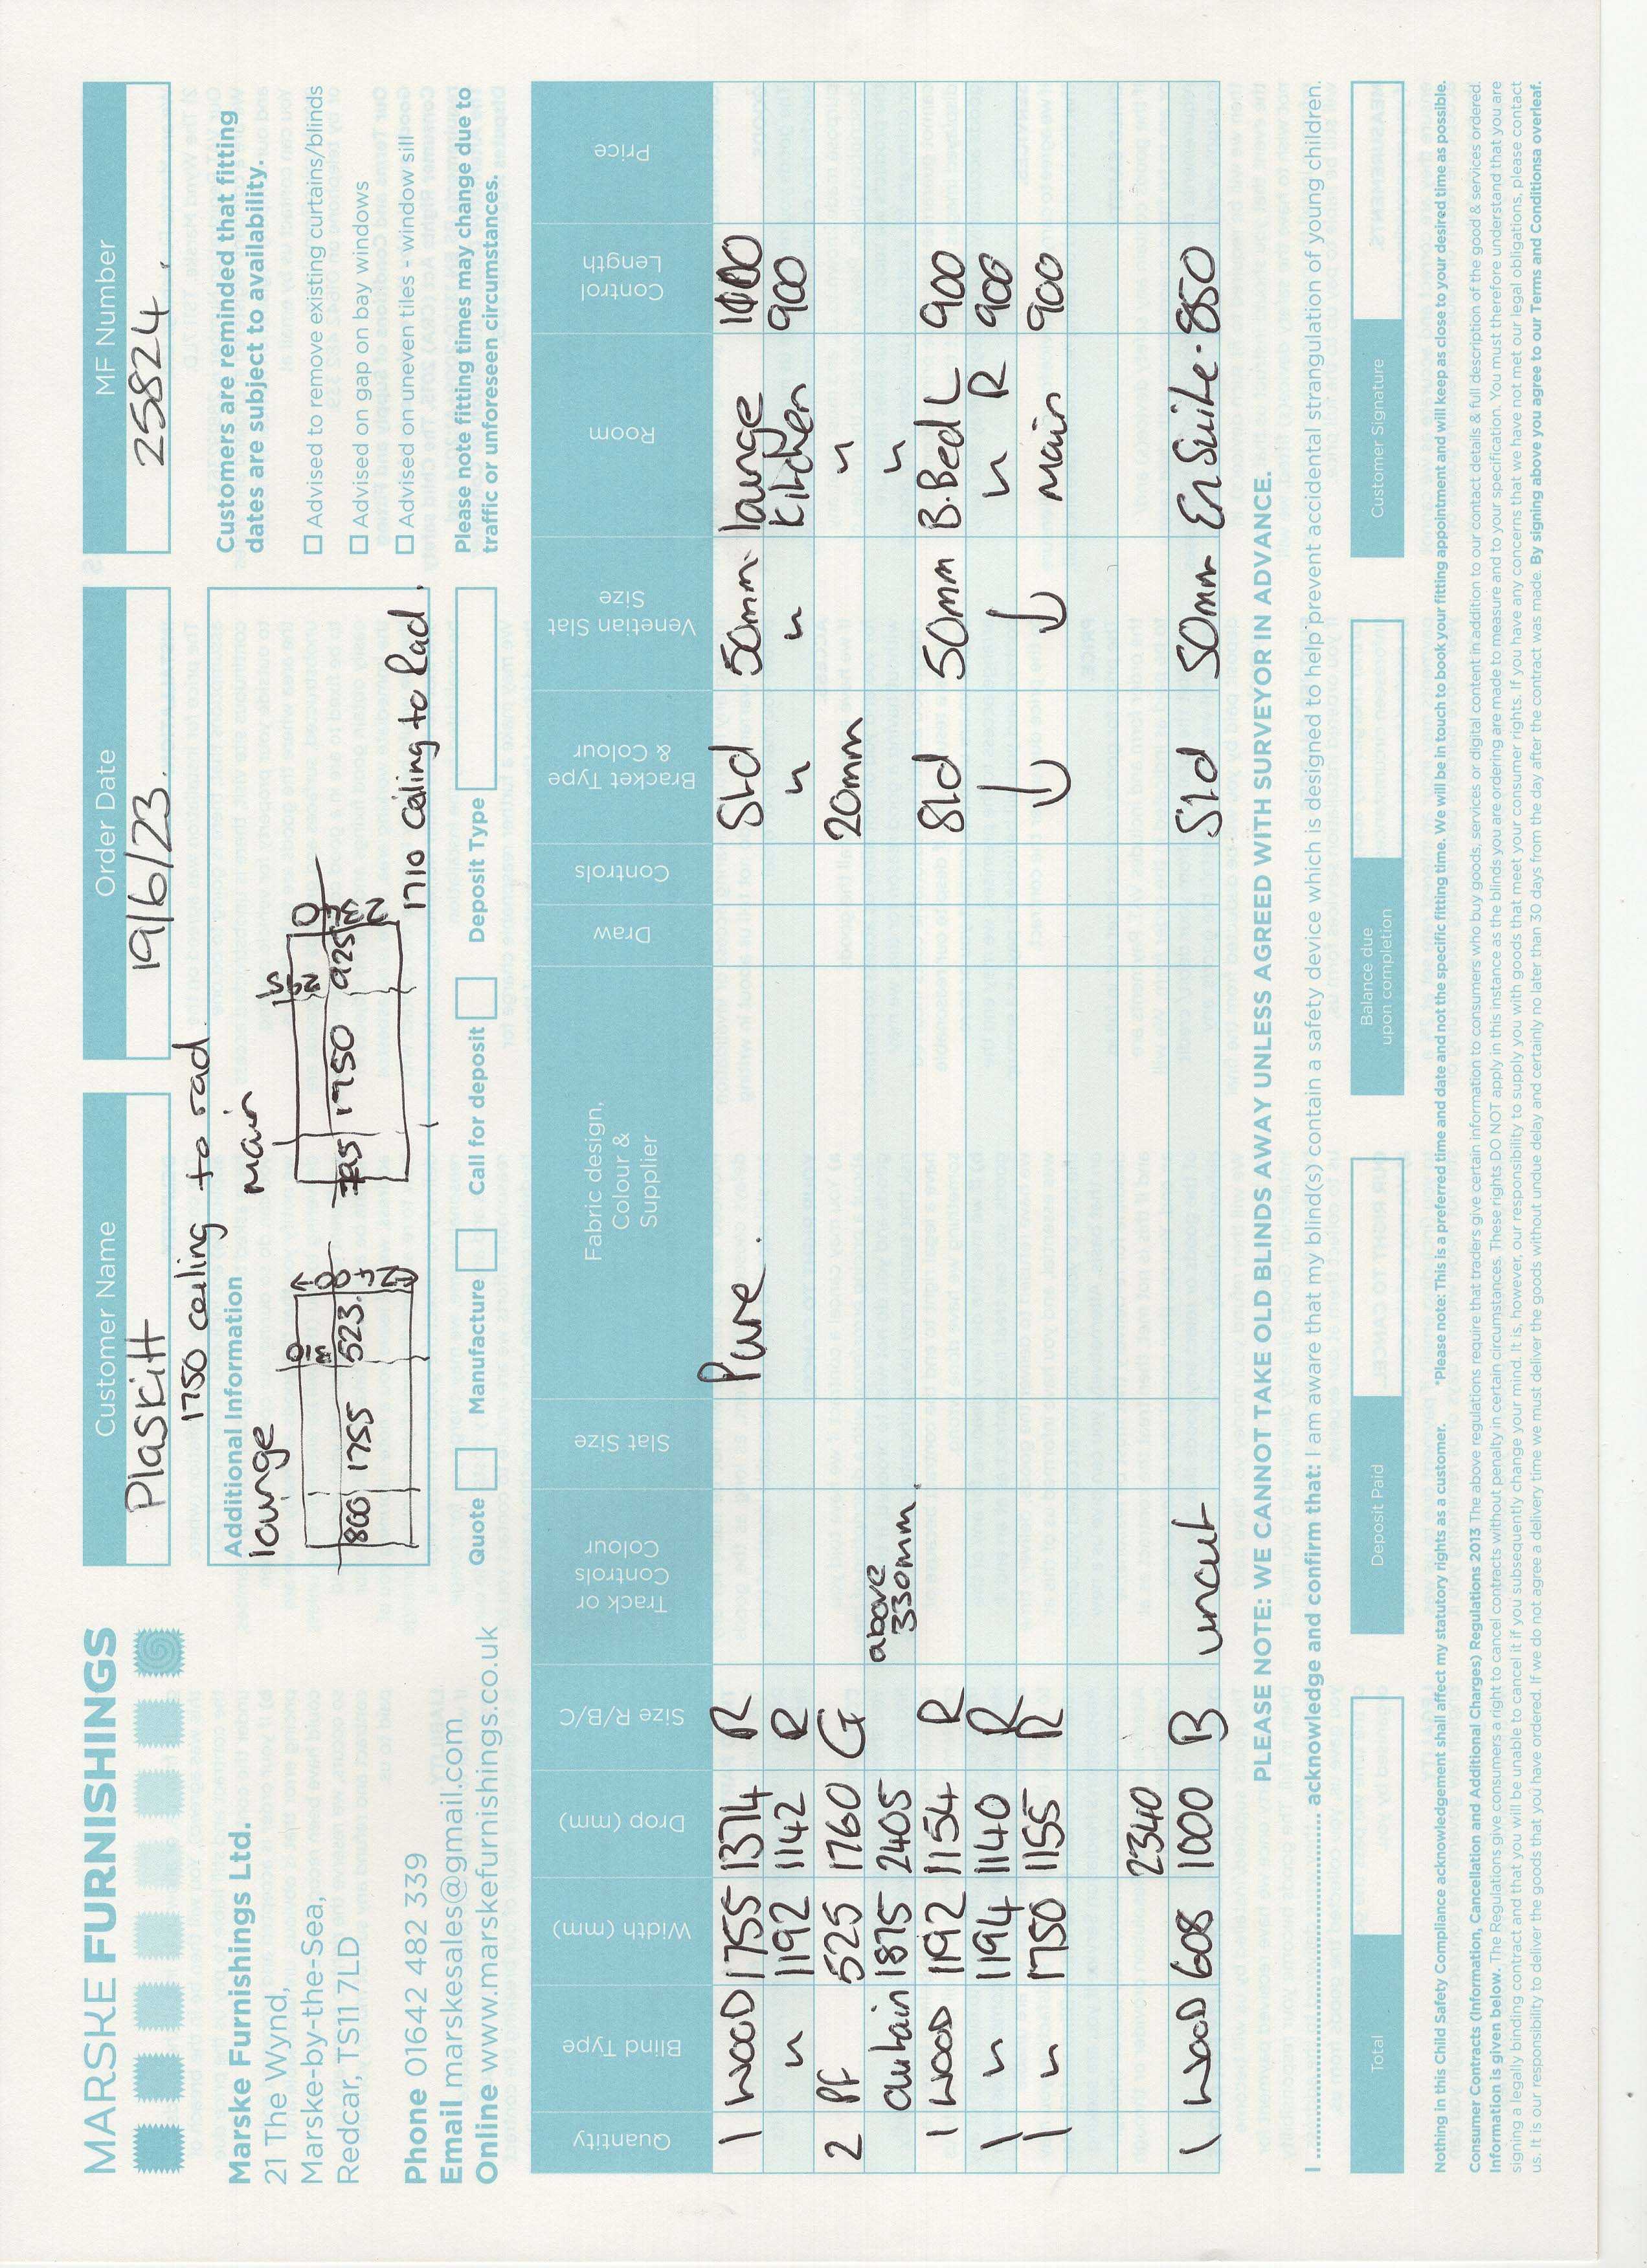 MARSKE FURNISHINGS
Marske Furnishings Ltd.
21 The Wynd,
Marske-by-the-Sea,
Redcar, TS11 7LD
Phone 01642 482 339
Email marskesales@gmail.com
Online www.marskefurnishings.co.uk
Customer Name
Plaskitt
Order Date
19/6/23.
MF Number
25824.
1750 ceiling to rad.
Additional Information
lounge
800 1755 523.
310
main
1750 925
295
1710 ceiling to Rad.
Customers are reminded that fitting
dates are subject to availability.
Advised to remove existing curtains/blinds
Advised on gap on bay windows
Advised on uneven tiles - window sill
Please note fitting times may change due to
traffic or unforeseen circumstances.
Quote Manufacture Call for deposit Deposit Type
Quantity Blind Type Width (mm) Drop (mm) Size R/B/C Track or Controls Colour Slat Size Fabric design, Colour & Supplier Draw Controls Bracket Type & Colour Venetian Slat Size Room Control Length Price
1 WOOD 1755 1374 R Pure. Std 50mm lounge 1000
" 1192 1142 R " " Kitchen 900
2 Pf 525 1760 G 20mm "
curtain 1875 2405 above 330mm. "
1 WOOD 1192 1154 R Std 50mm B.Bed L 900
1 " 1194 1140 R " R 900
1 " 1750 1155 R Main 900
2340
1 WOOD 608 1000 B uncut Std 50mm En Suite - 850
PLEASE NOTE: WE CANNOT TAKE OLD BLINDS AWAY UNLESS AGREED WITH SURVEYOR IN ADVANCE.
I ........................................ acknowledge and confirm that: I am aware that my blind(s) contain a safety device which is designed to help prevent accidental strangulation of young children.
Total
Deposit Paid
Balance due
upon completion
Customer Signature
Nothing in this Child Safety Compliance acknowledgement shall affect my statutory rights as a customer. *Please note: This is a preferred time and date and not the specific fitting time. We will be in touch to book your fitting appointment and will keep as close to your desired time as possible.
Consumer Contracts (Information, Cancellation and Additional Charges) Regulations 2013 The above regulations require that traders give certain information to consumers who buy goods, services or digital content in addition to our contact details & full description of the good & services ordered.
Information is given below. The Regulations give consumers a right to cancel contracts without penalty in certain circumstances. These rights DO NOT apply in this instance as the blinds you are ordering are made to measure and to your specification. You must therefore understand that you are
signing a legally binding contract and that you will be unable to cancel it if you subsequently change your mind. It is, however, our responsibility to supply you with goods that meet your consumer rights. If you have any concerns that we have not met our legal obligations, please contact
us. It is our responsibility to deliver the goods that you have ordered. If we do not agree a delivery time we must deliver the goods without undue delay and certainly no later than 30 days from the day after the contract was made. By signing above you agree to our Terms and Conditionsa overleaf.